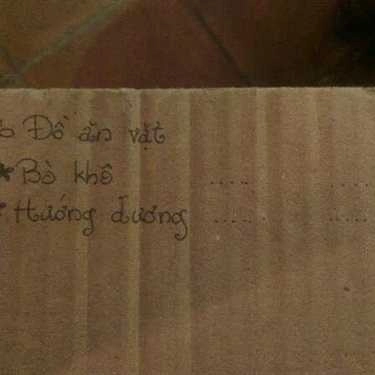 Đồ ăn vặt
* Bò khô ..... .....
* Hướng dương ..... .....